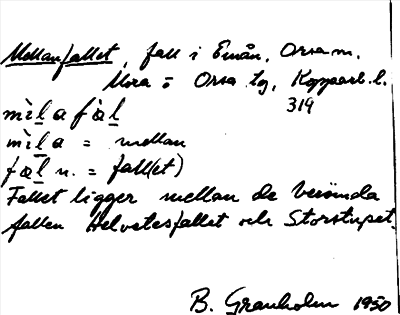 Mellanfallet, fall i Emån, Orsa sn.
Mora ö Orsa tg, Kopparb. l.
319
mìla fàl
mìla = mellan
fæl n. = fall(et)
Fallet ligger mellan de berömda
fallen Helvetesfallet och Storstupet.
B. Granholm 1950